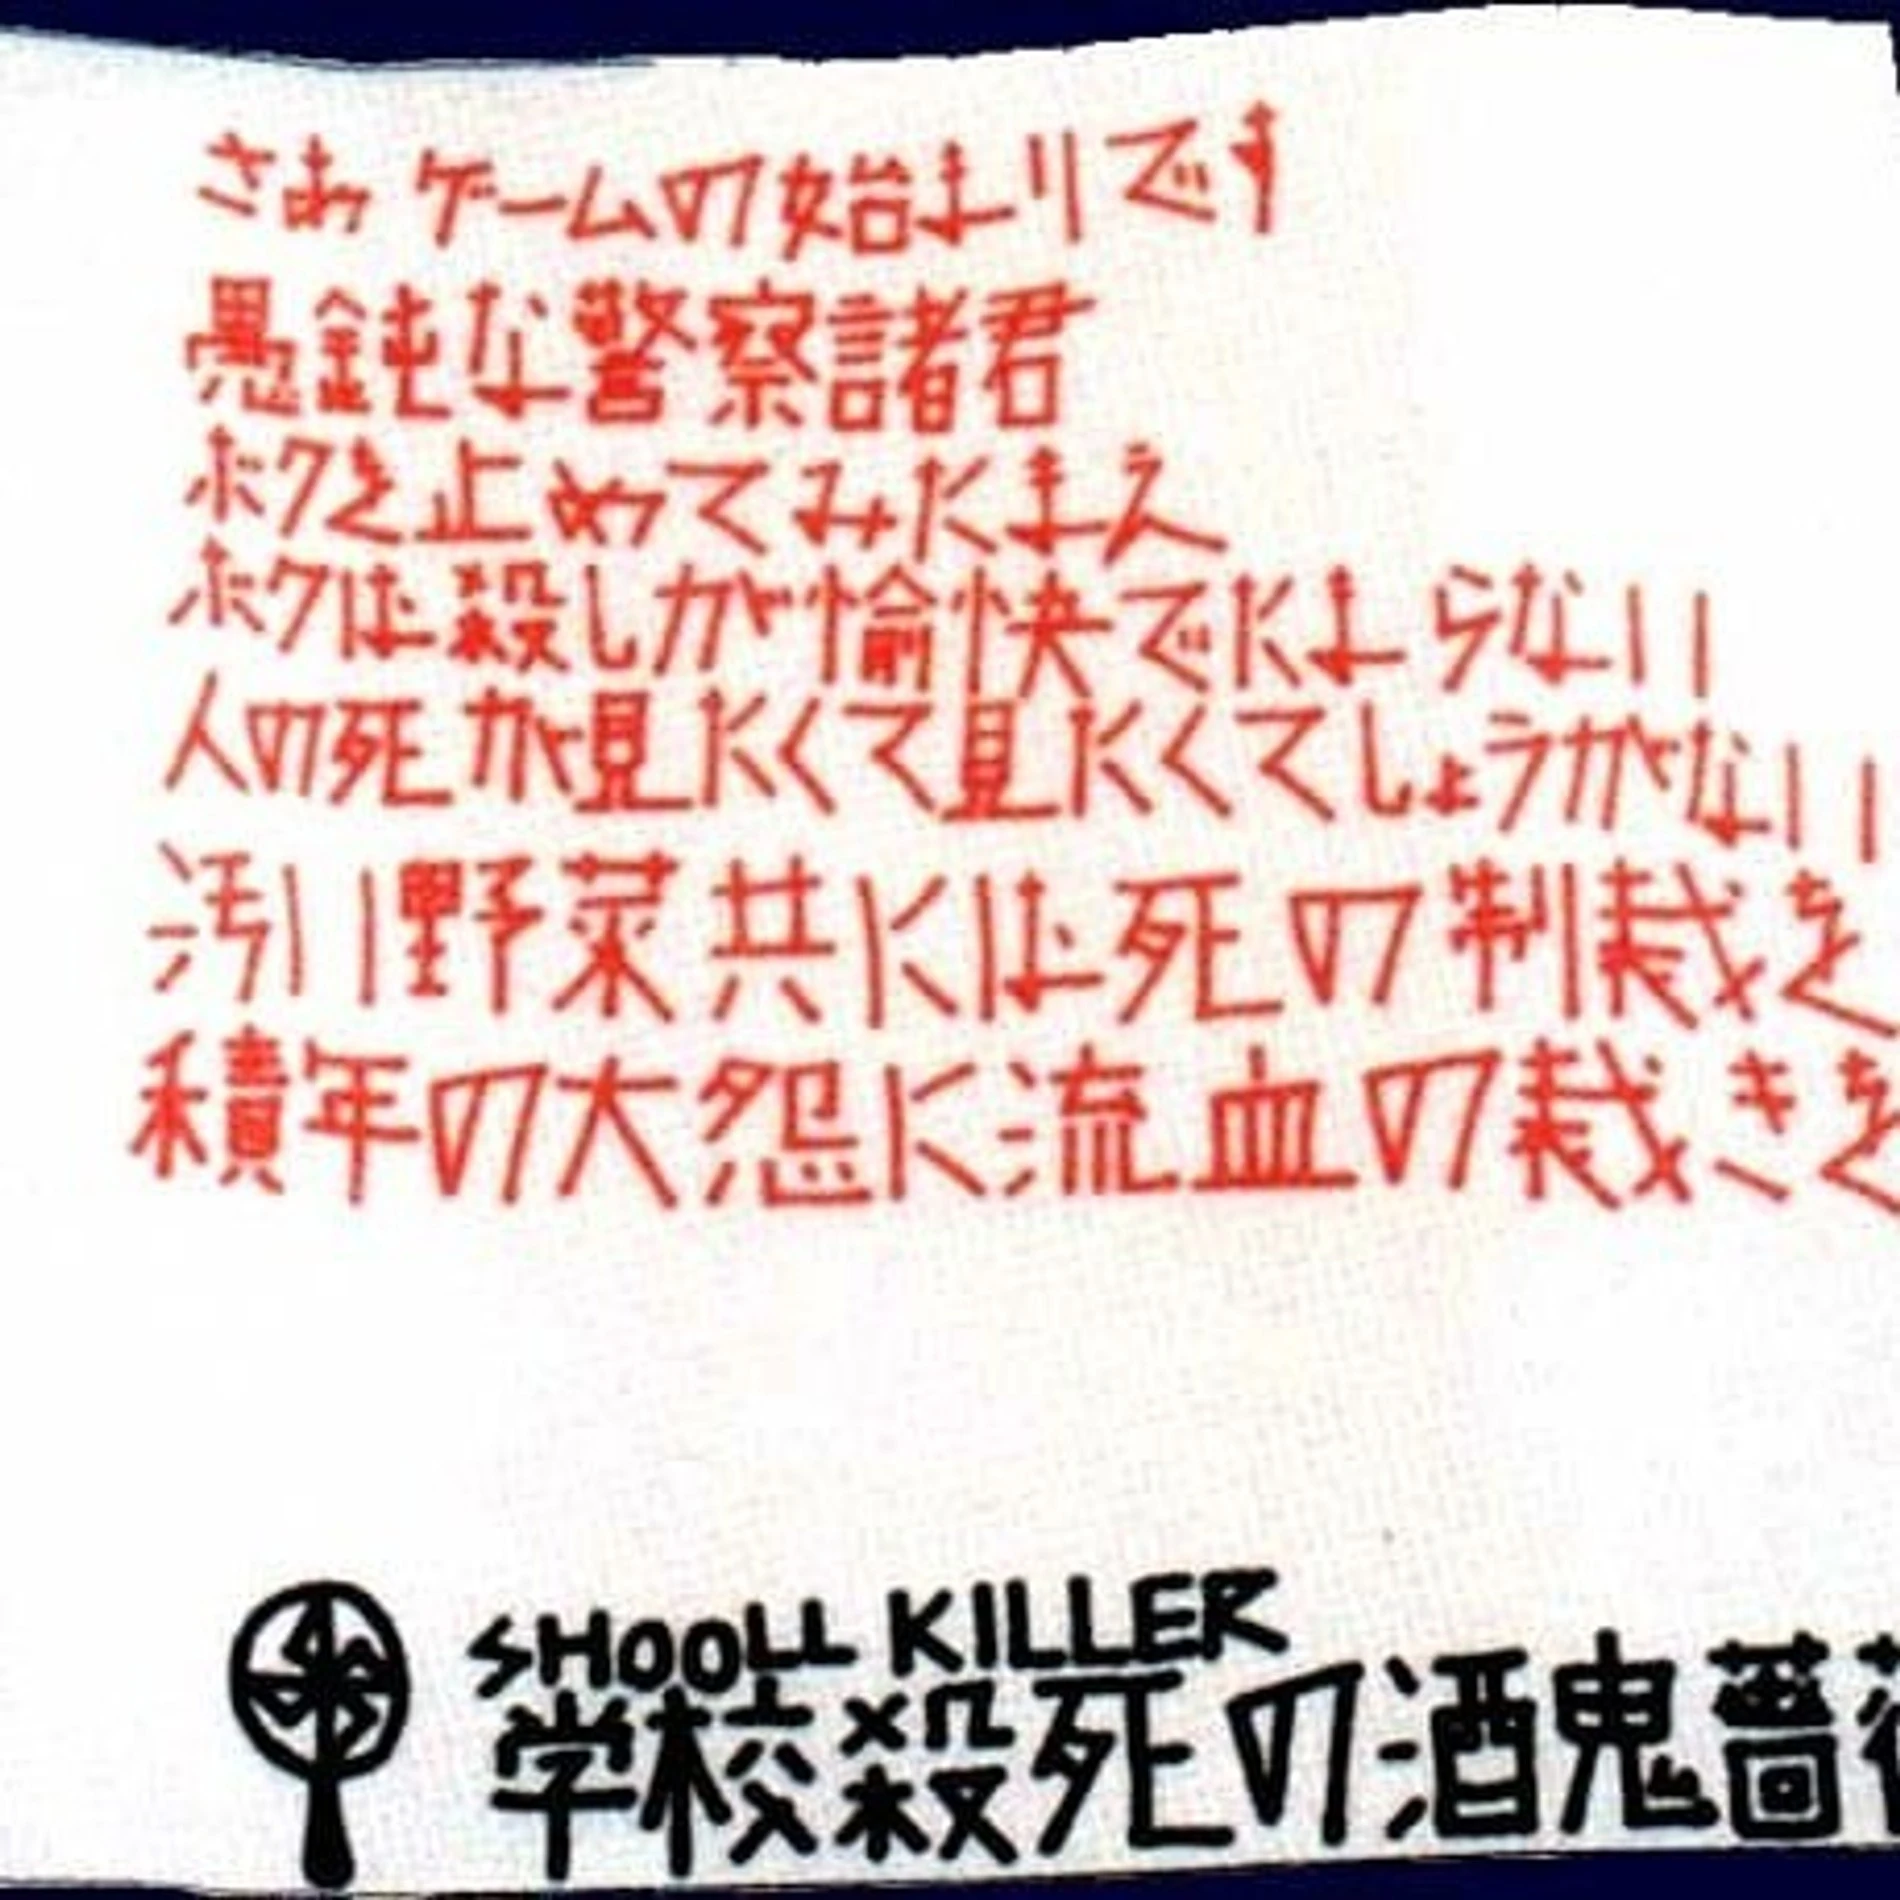 さあゲームの始まりです
愚鈍な警察諸君
ボクを止めてみたまえ
ボクは殺しが愉快でたまらない
人の死が見たくて見たくてしょうがない
汚い野菜共には死の制裁を
積年の大怨に流血の裁きを
SHOOLL KILLER
学校殺死の酒鬼薔